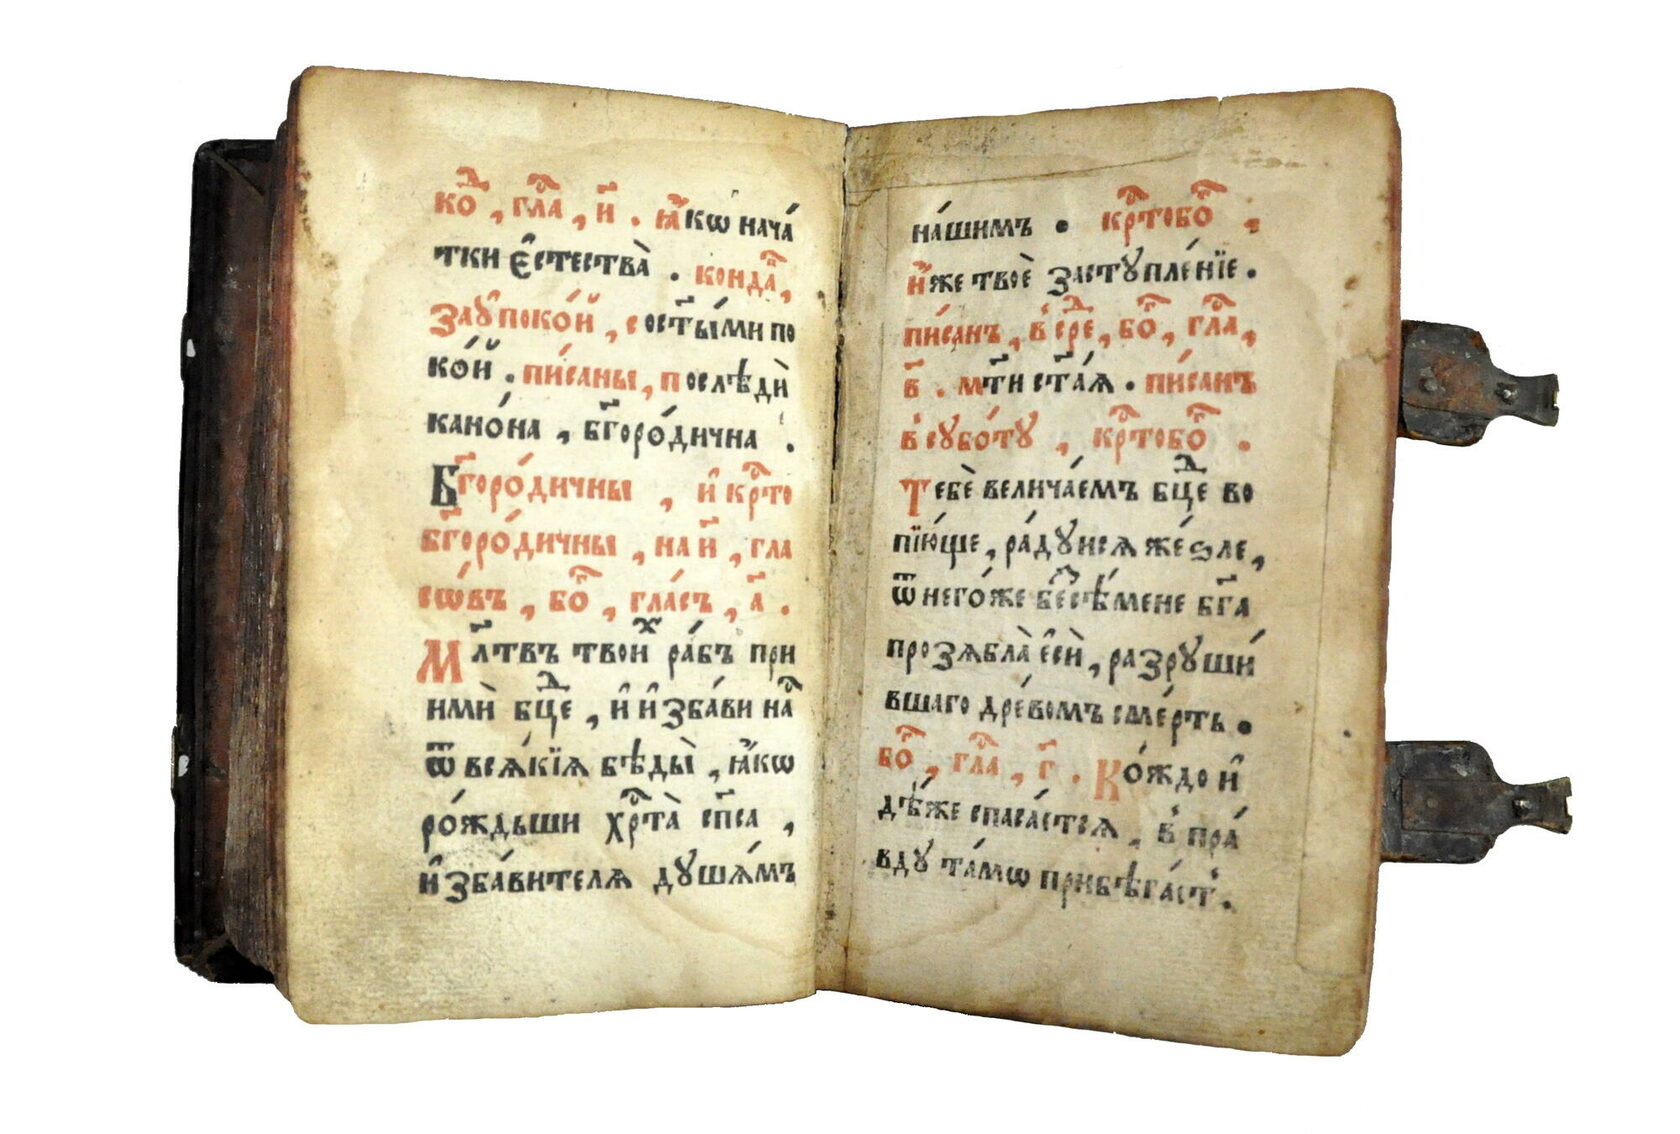 ко҇д, гла҇, и҃. ꙗ҆́кѡ нача́
тки є҆стества̀. конда҇к,
заꙋпоко́й, с ост҃ы́ми по
ко́й. пи́саны, послѣдѝ
кано́на, бг҃оро́дична.
Бг҃оро́дичны, и҆ кр҇то
бг҃оро́дичны, на и҃, гла
сѡ́въ, бо҇г, гла́съ, а҃.
Мл҃твъ твоиⷯ ра́бъ при
имѝ бцⷣе, и҆ и҆зба́ви на҇с
ѿ всѧ́кїѧ бѣды̀, ꙗ҆́кѡ
ро́ждьши хр҇та̀ сп҃са,
и҆зба́вителѧ дꙋша́мъ
на́шимъ. кр҇тобо҇г,
И҆́же твоѐ застꙋпле́нїе.
пи́санъ, в̾ сре҇д, бо҇г, гла҇,
в҃. мт҃и ст҃а́ѧ. пи́санъ
в̾ сꙋбо́тꙋ, кр҇тобо҇г.
Тебѐ велича́емъ бцⷣе во
пїю́ще, ра́дꙋисѧ же́ѕле,
ѿ негѡ́же бе҇сѣ́мене бг҃а
прозѧбла̀ є҆сѝ, разрꙋши́
вшаго дре́вомъ сме́рть.
бо҇г, гла҇, г҃. Ко́ждо и҆
дѣ́же спаса́етсѧ, в̾ пра́
вдꙋ та́мѡ прибѣга́ет̾.